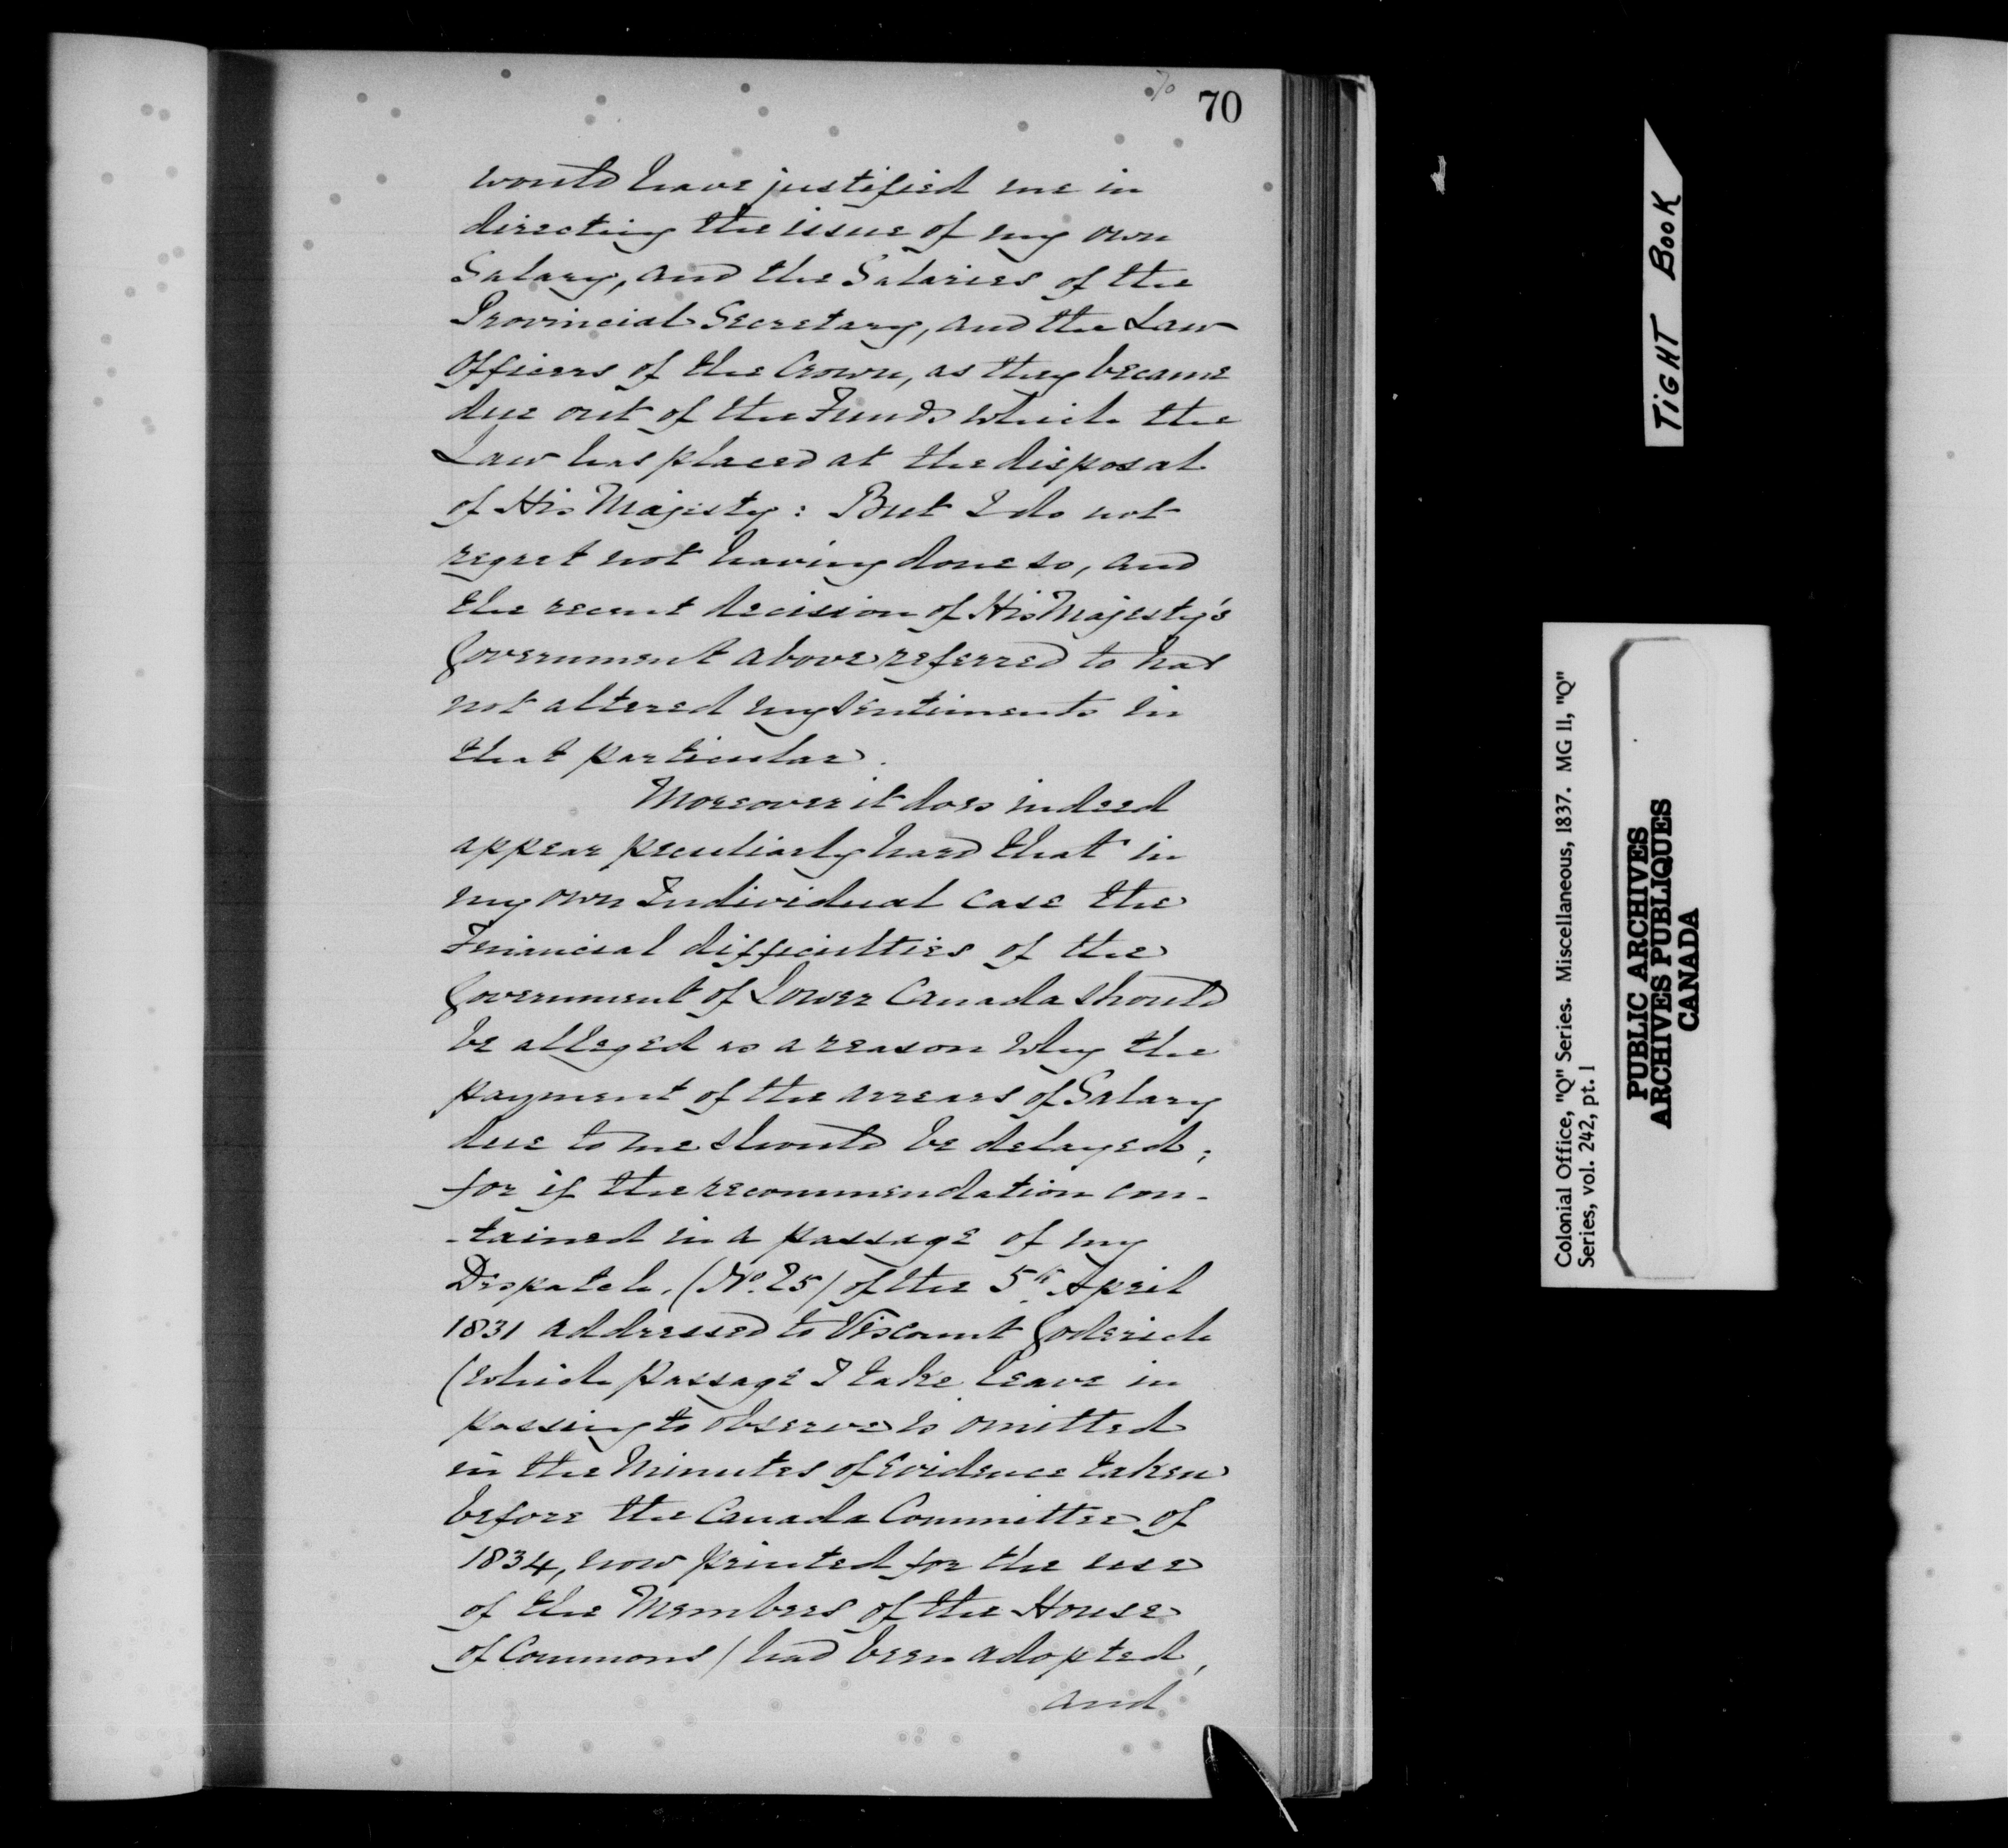 70
70
would have justified me in
directing the issue of my own
Salary, and the Salaries of the
Provincial Secretary, and the Law
Officers of the Crown, as they became
due out of the Funds which the
Law has placed at the disposal
of His Majesty: But I do not
regret not having done so, and
the recent decision of His Majesty's
Government above referred to has
not altered my sentiments in
that particular.
Moreover it does indeed
appear peculiarly hard that in
my own Individual case the
Financial difficulties of the
Government of Lower Canada should
be alleged as a reason why the
payment of the arrears of Salary
due to me should be delayed;
for if the recommendation con-
-tained in a passage of my
Despatch, (No. 25) of the 5th April
1831 addressed to Viscount Goderich
(which passage I take leave in
passing to observe is omitted
in the Minutes of Evidence taken
before the Canada Committee of
1834, now printed for the use
of the Members of the House
of Commons) had been adopted,
and
TIGHT BOOK
Colonial Office, "Q" Series. Miscellaneous, 1837. MG 11, "Q"
Series, vol. 242, pt. 1
PUBLIC ARCHIVES
ARCHIVES PUBLIQUES
CANADA